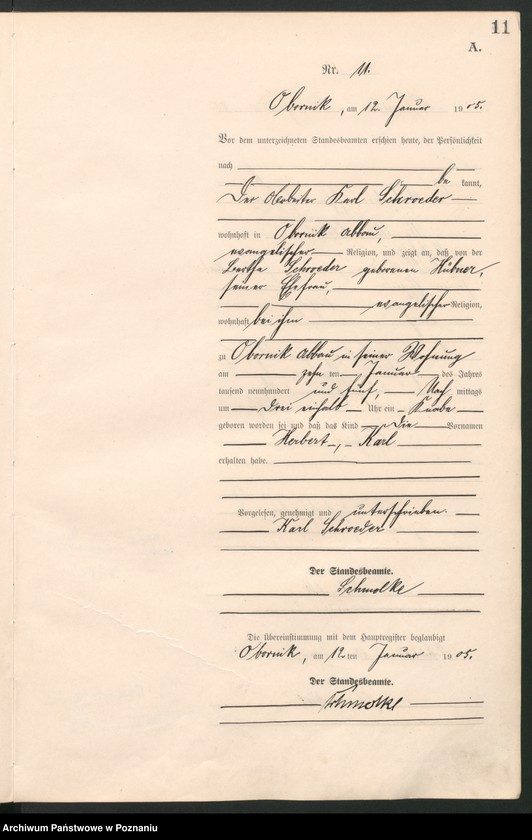 11
A.
Nr. 11.
Obornik, am 12. Januar 1905.
Vor dem unterzeichneten Standesbeamten erschien heute, der Persönlichkeit
nach
be kannt,
Der Arbeiter Karl Schroeder
wohnhaft in Obornik Abbau,
evangelischer Religion, und zeigt an, daß von der
Bertha Schroeder geborenen Hübner,
seiner Ehefrau,
evangelischer Religion,
wohnhaft bei ihm
zu Obornik Abbau in seiner Wohnung
am zehnten Januar des Jahres
tausend neunhundert und fünf, Nach mittags
um drei einhalb Uhr ein Knabe
geboren worden sei und daß das Kind die Vornamen
Herbert, Karl
erhalten habe.
Vorgelesen, genehmigt und unterschrieben.
Karl Schroeder
Der Standesbeamte.
Schmolke
Die Übereinstimmung mit dem Hauptregister beglaubigt
Obornik, am 12ten Januar 1905.
Der Standesbeamte.
Schmolke
Archiwum Państwowe w Poznaniu